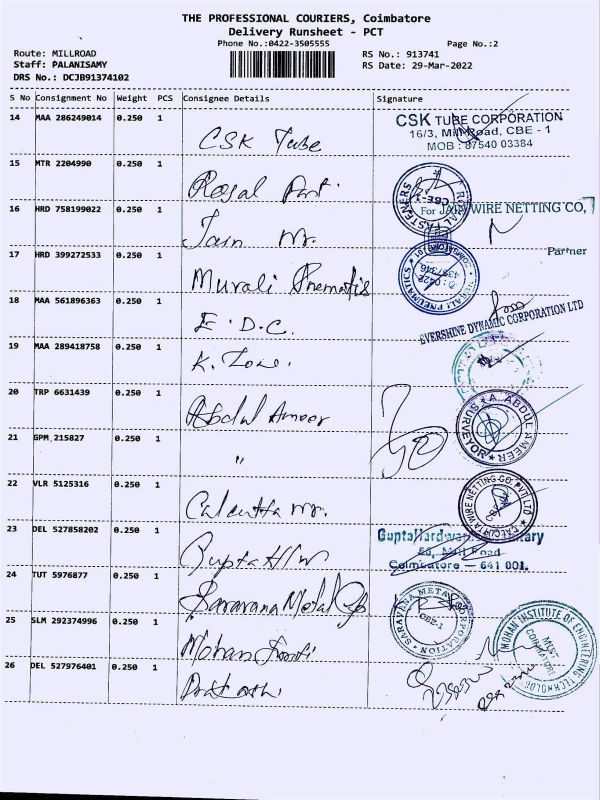 THE PROFESSIONAL COURIERS, Coimbatore
Delivery Runsheet - PCT
Phone No.:0422-3505555 Page No.:2
Route: MILLROAD RS No.: 913741
Staff: PALANISAMY RS Date: 29-Mar-2022
DRS No.: DCJB91374102
S No Consignment No Weight PCS Consignee Details Signature
14 MAA 286249014 0.250 1 CSK Tube
CSK TUBE CORPORATION
16/3, Mill Road, CBE - 1
MOB : 87540 03384
15 MTR 2204990 0.250 1 Royal
ROYAL FASTENERS
CBE-1
16 HRD 758199022 0.250 1 Jain Wr.
For JAIN WIRE NETTING CO,
Partner
17 HRD 399272533 0.250 1 Murali Pnematis
MURALI PNEUMATICS
18 MAA 561896363 0.250 1 E.D.C.
EVERSHINE DYNAMIC CORPORATION LTD
19 MAA 289418758 0.250 1 K. Zone.
20 TRP 6631439 0.250 1 Abdul Ameer
A. ABDUL AMEER
SURVEYOR
21 GPM 215827 0.250 1 "
22 VLR 5125316 0.250 1 Calcutta Wr.
CALCUTTA WIRE NETTING CO. PVT LTD
23 DEL 527858202 0.250 1 Gupta H/W
Gupta Hardware
56, Mill Road
Coimbatore — 641 001.
24 TUT 5976877 0.250 1 Saravana Metal Cp
SARAVANA METAL CORPORATION
CBE-1
25 SLM 292374996 0.250 1 Mohan
MOHAN INSTITUTE OF ENGINEERING TECHNOLOGY
COIMBATORE
26 DEL 527976401 0.250 1 Prakash